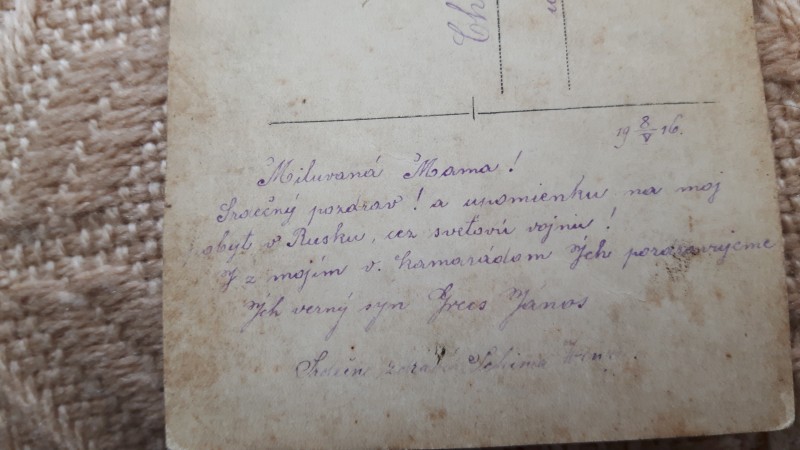 Ch
19 8/V 16.
Miluvaná Mama!
Srdečný pozdrav! a upomienku na moj
obyt v Rusku, cez svetovú vojnu!
I z mojím v. kamarádom Ich pozdravujeme
Ich verný syn Grecs János